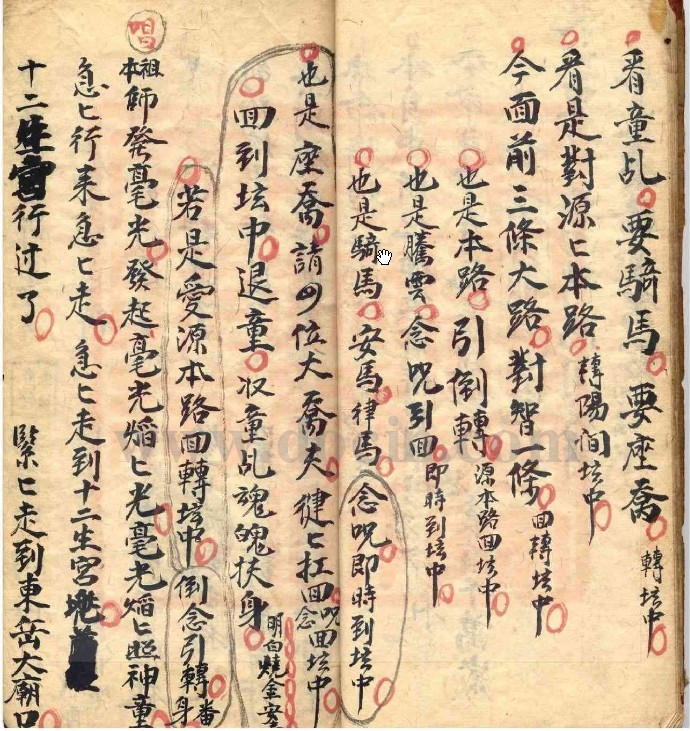 看童乩要騎馬要座喬轉坛中
看是對源匕本路轉陽间坛中
今面前三條大路對智一條回轉坛中
也是本路引倒轉源本路回坛中
也是騰雲念咒引回即時到坛中
也是騎馬安馬律馬念咒即時到坛中
也是座喬請四位大喬夫健匕扛回回坛中
念咒
回到坛中退童収童乩魂魄扶身
明白燒金
若是愛源本路回轉坛中倒念引轉身
番
唱
祖本師發毫光發起毫光焰匕光毫光焰匕照神童
急匕行来急匕走急匕走到十二生宮
十二生宮行过了緊匕走到東岳大廟口
www.docin.com